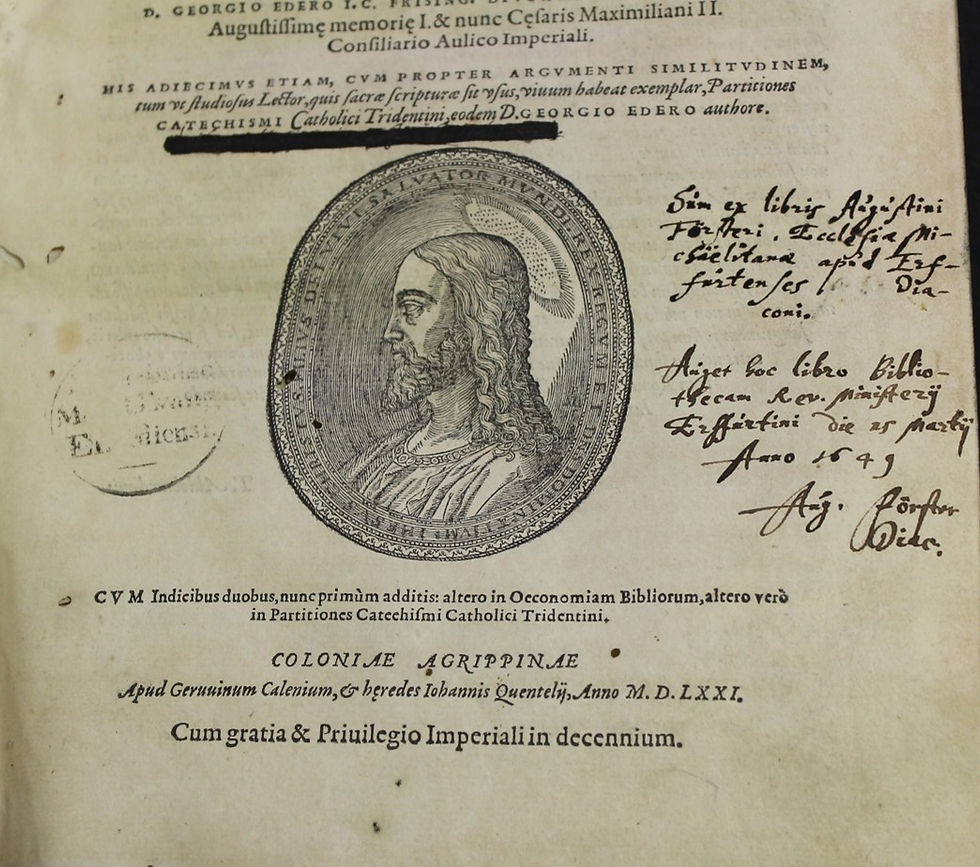 D. GEORGIO EDERO I.C. FRISING.
Augustiſſimę memorię I. & nunc Cęſaris Maximiliani II.
Conſiliario Aulico Imperiali.
HIS ADIECIMVS ETIAM, CVM PROPTER ARGVMENTI SIMILITVDINEM,
tum vt ſtudioſus Lector, quis ſacræ ſcripturæ ſit vſus, viuum habeat exemplar, Partitiones
CATECHISMI Catholici Tridentini, eodem D. GEORGIO EDERO authore.
SALVATOR MVNDI REX REGVM ET
Sum ex libris Augustini
Försteri. Ecclesiæ Mi-
chäelitanæ apud Erf-
furtenses Dia-
coni.
Auget hoc libro Biblio-
thecam Rev. Ministerij
Erffurtini die Martij
Anno 1649
Aug. Förster
Diac.
CVM Indicibus duobus, nunc primùm additis: altero in Oeconomiam Bibliorum, altero verò
in Partitiones Catechiſmi Catholici Tridentini.
COLONIAE AGRIPPINAE
Apud Geruuinum Calenium, & hęredes Iohannis Quentelij, Anno M. D. LXXI.
Cum gratia & Priuilegio Imperiali in decennium.